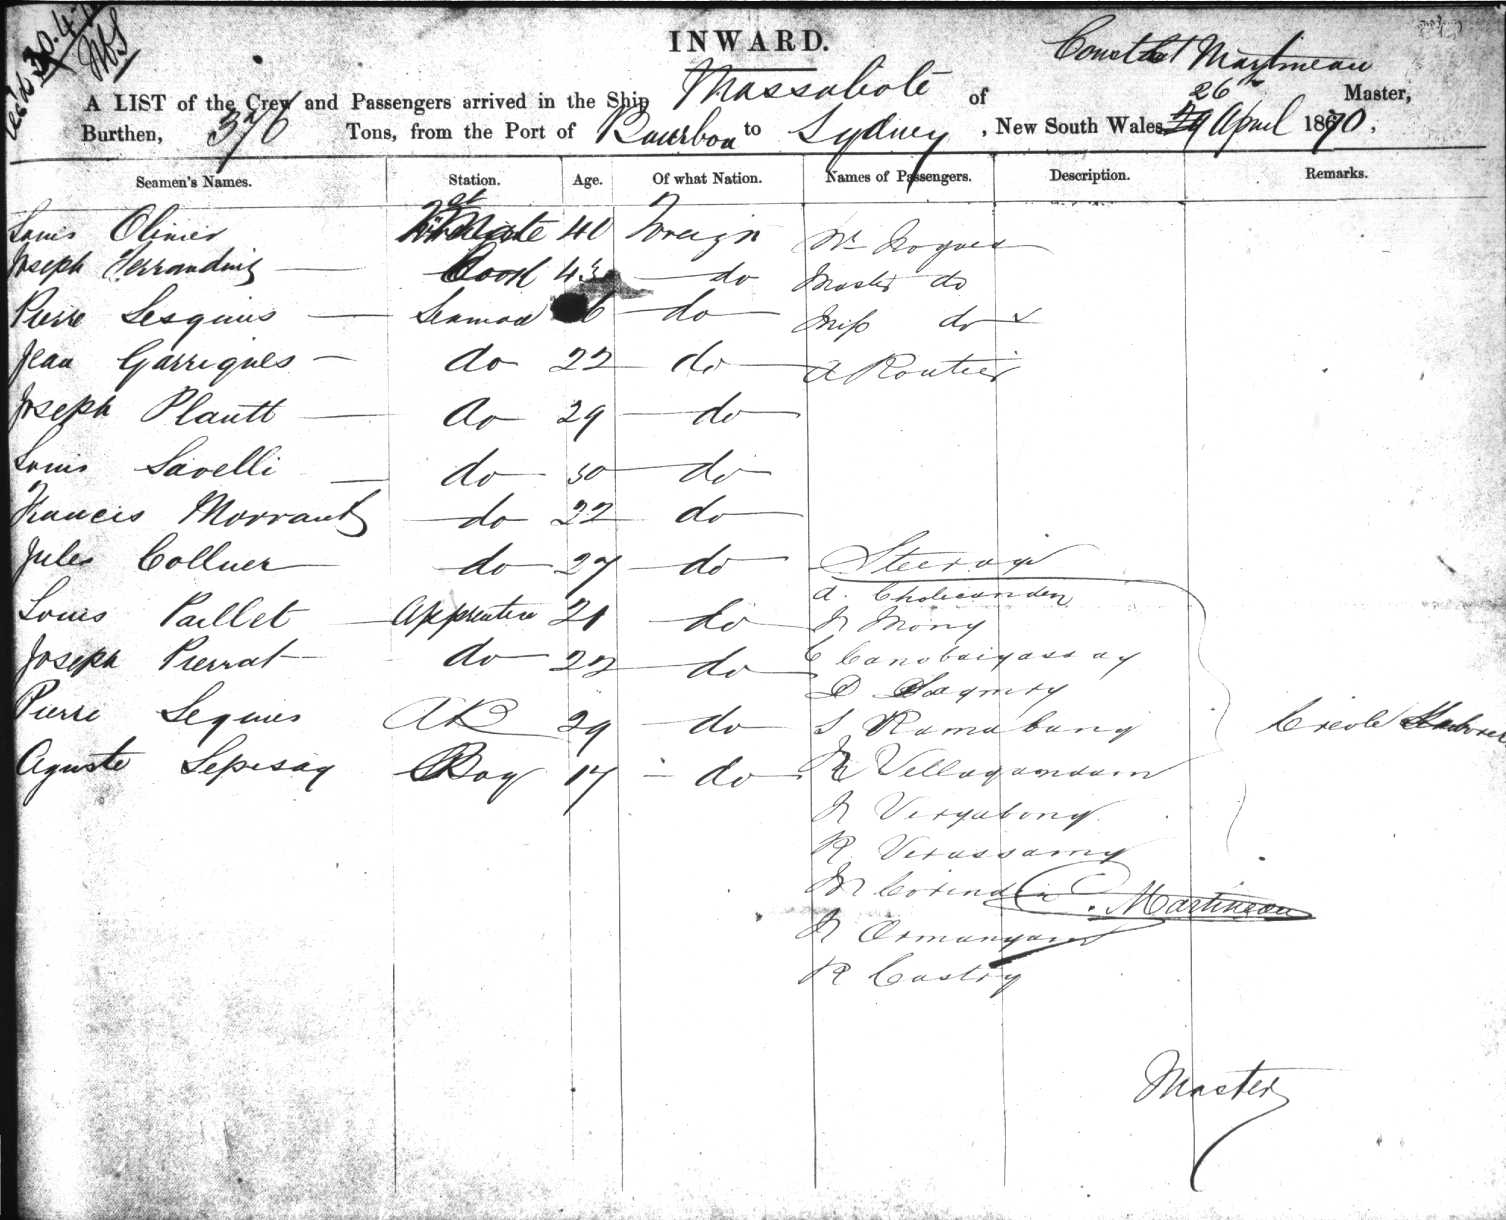 INWARD.
A LIST of the Crew and Passengers arrived in the Ship Massabote of Martineau Master,
Burthen, 376 Tons, from the Port of Bourbon to Sydney, New South Wales, 26th April 1870,
Seamen's Names. Station. Age. Of what Nation. Names of Passengers. Description. Remarks.
Louis Olivier 1st Mate 40 Foreign Mr Nogues
Joseph Ferranding Cook 43 do Master do
Pierre Lesquis Seaman do Miss do
Jean Garrigues do 22 do A Routier
Joseph Plautt do 29 do
Louis Savelli do 30 do
Francis Morrant do 22 do
Jules Colluer do 27 do Steerage
A.
Louis Paillet Apprentice 21 do Mony
Joseph Pierrat do 22 do C Canobaiyassay
D
Pierre Seques AB 29 do S Ramabang Creole
Aguste Lepesay Boy 17 do Vellagamdam
Veryabong
R Verassamy
M C. Martineau
R Castry
Master